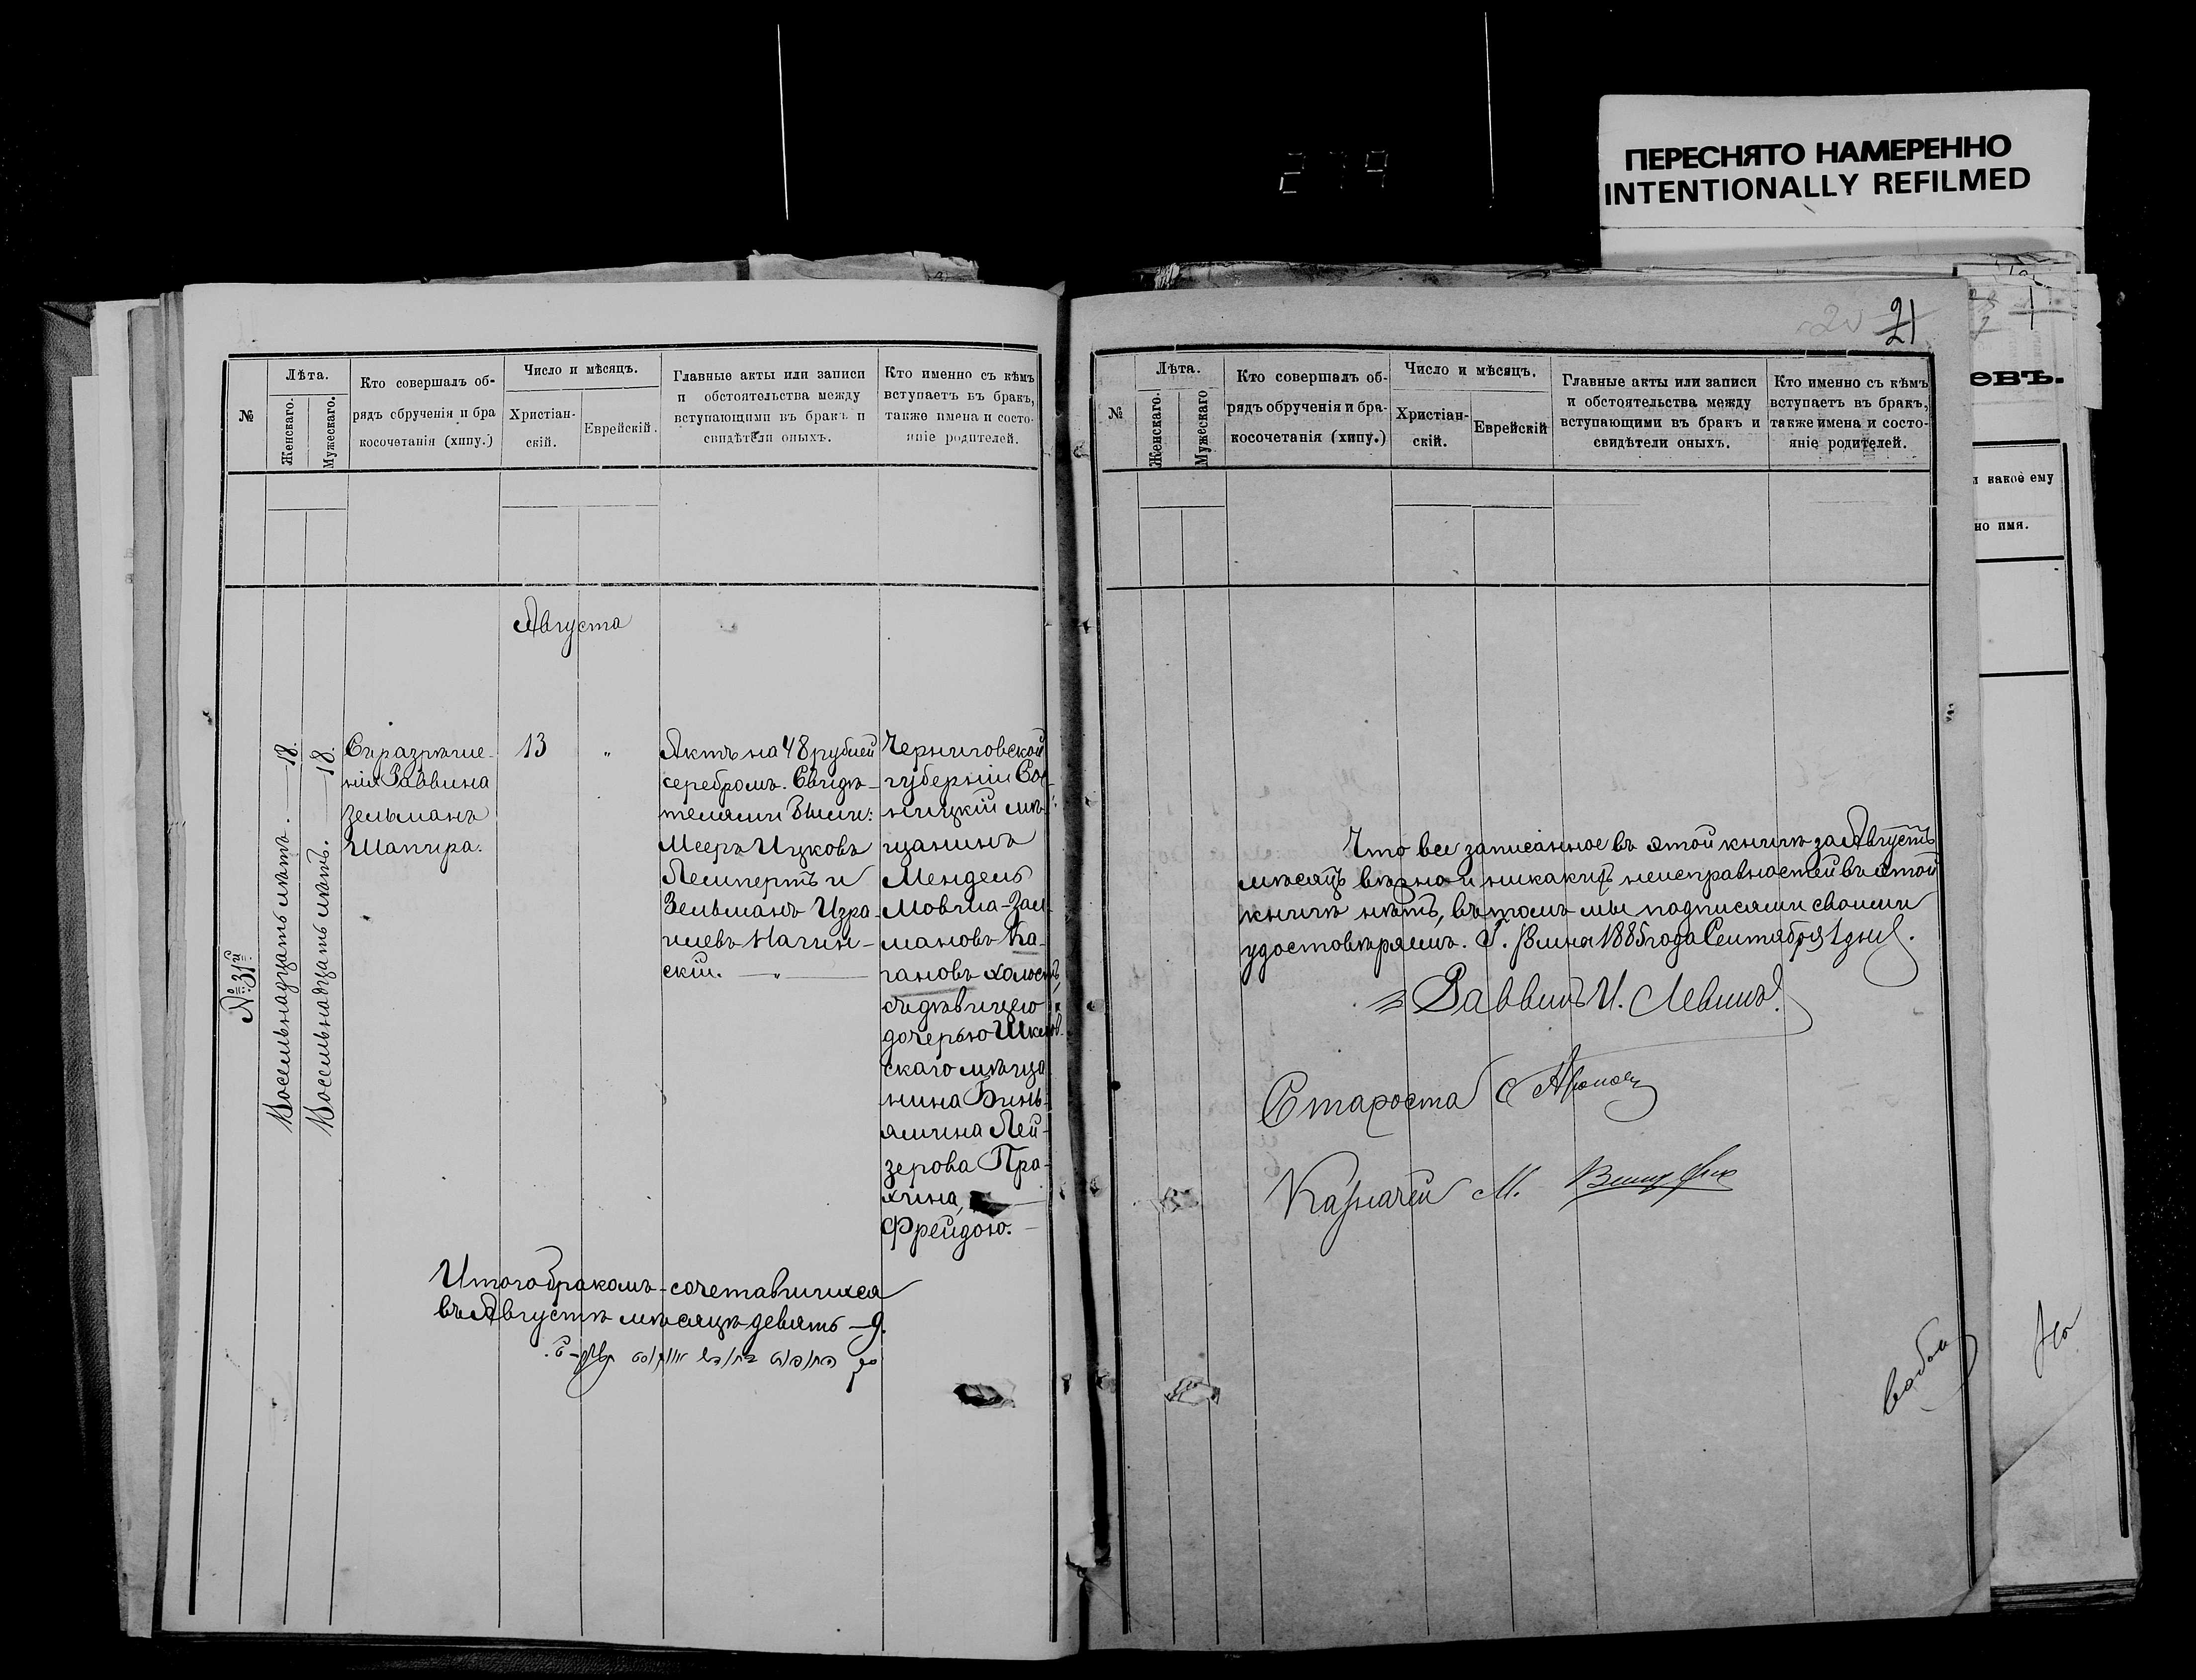 279
ПЕРЕСНЯТО НАМЕРЕННО
INTENTIONALLY REFILMED
№
Лѣта.
Женскаго.
Мужескаго.
Кто совершалъ об-
рядъ обрученія и бра
косочетанія (хипу.)
Число и мѣсяцъ.
Христіан-
скій.
Еврейскій.
Главные акты или записи
и обстоятельства между
вступающими въ бракъ и
свидѣтели оныхъ.
Кто именно съ кѣмъ
вступаетъ въ бракъ,
также имена и состо-
яніе родителей.
Августа
№ 31й
Восемьнадцать лѣтъ. — 18.
Восемьнадцать лѣтъ. — 18.
Съ разрѣше-
нія Раввина
Зельманъ
Шапира.
13
"
Актъ на 48 рублей
серебромъ. Свидѣ-
телями были:
Мееръ Ицковъ
Лемпертъ и
Зельманъ Изра-
илевъ Нагин-
скій. — " —
Черниговской
губерніи Сос-
ницкій мѣ-
щанинъ
Мендель
Мовша-Зал-
мановъ Ка-
гановъ холостъ,
съ дѣвицею
дочерью Шклов-
скаго мѣща
нина Бинь-
ямина Лей-
зерова Пра-
хина,
Фрейдою. —
Итого бракомъ-сочетавшихся
въ Августѣ мѣсяцѣ девять — 9.
21
№
Лѣта.
Женскаго.
Мужескаго
Кто совершалъ об-
рядъ обрученія и бра-
косочетанія (хипу.)
Число и мѣсяцъ.
Христіан-
скій.
Еврейскій
Главные акты или записи
и обстоятельства между
вступающими въ бракъ и
свидѣтели оныхъ.
Кто именно съ кѣмъ
вступаетъ въ бракъ,
также имена и состо-
яніе родителей.
Что все записанное въ этой книгѣ за Августъ
мѣсяцъ вѣрно и никакихъ неисправностей въ этой
книгѣ нѣтъ, въ томъ мы подписями своими
удостовѣряемъ. Г. 1885 года Сентября 1 дня.
Раввинъ И. Левинъ.
Староста
Казначей М.
овъ.
и какое ему
но имя.